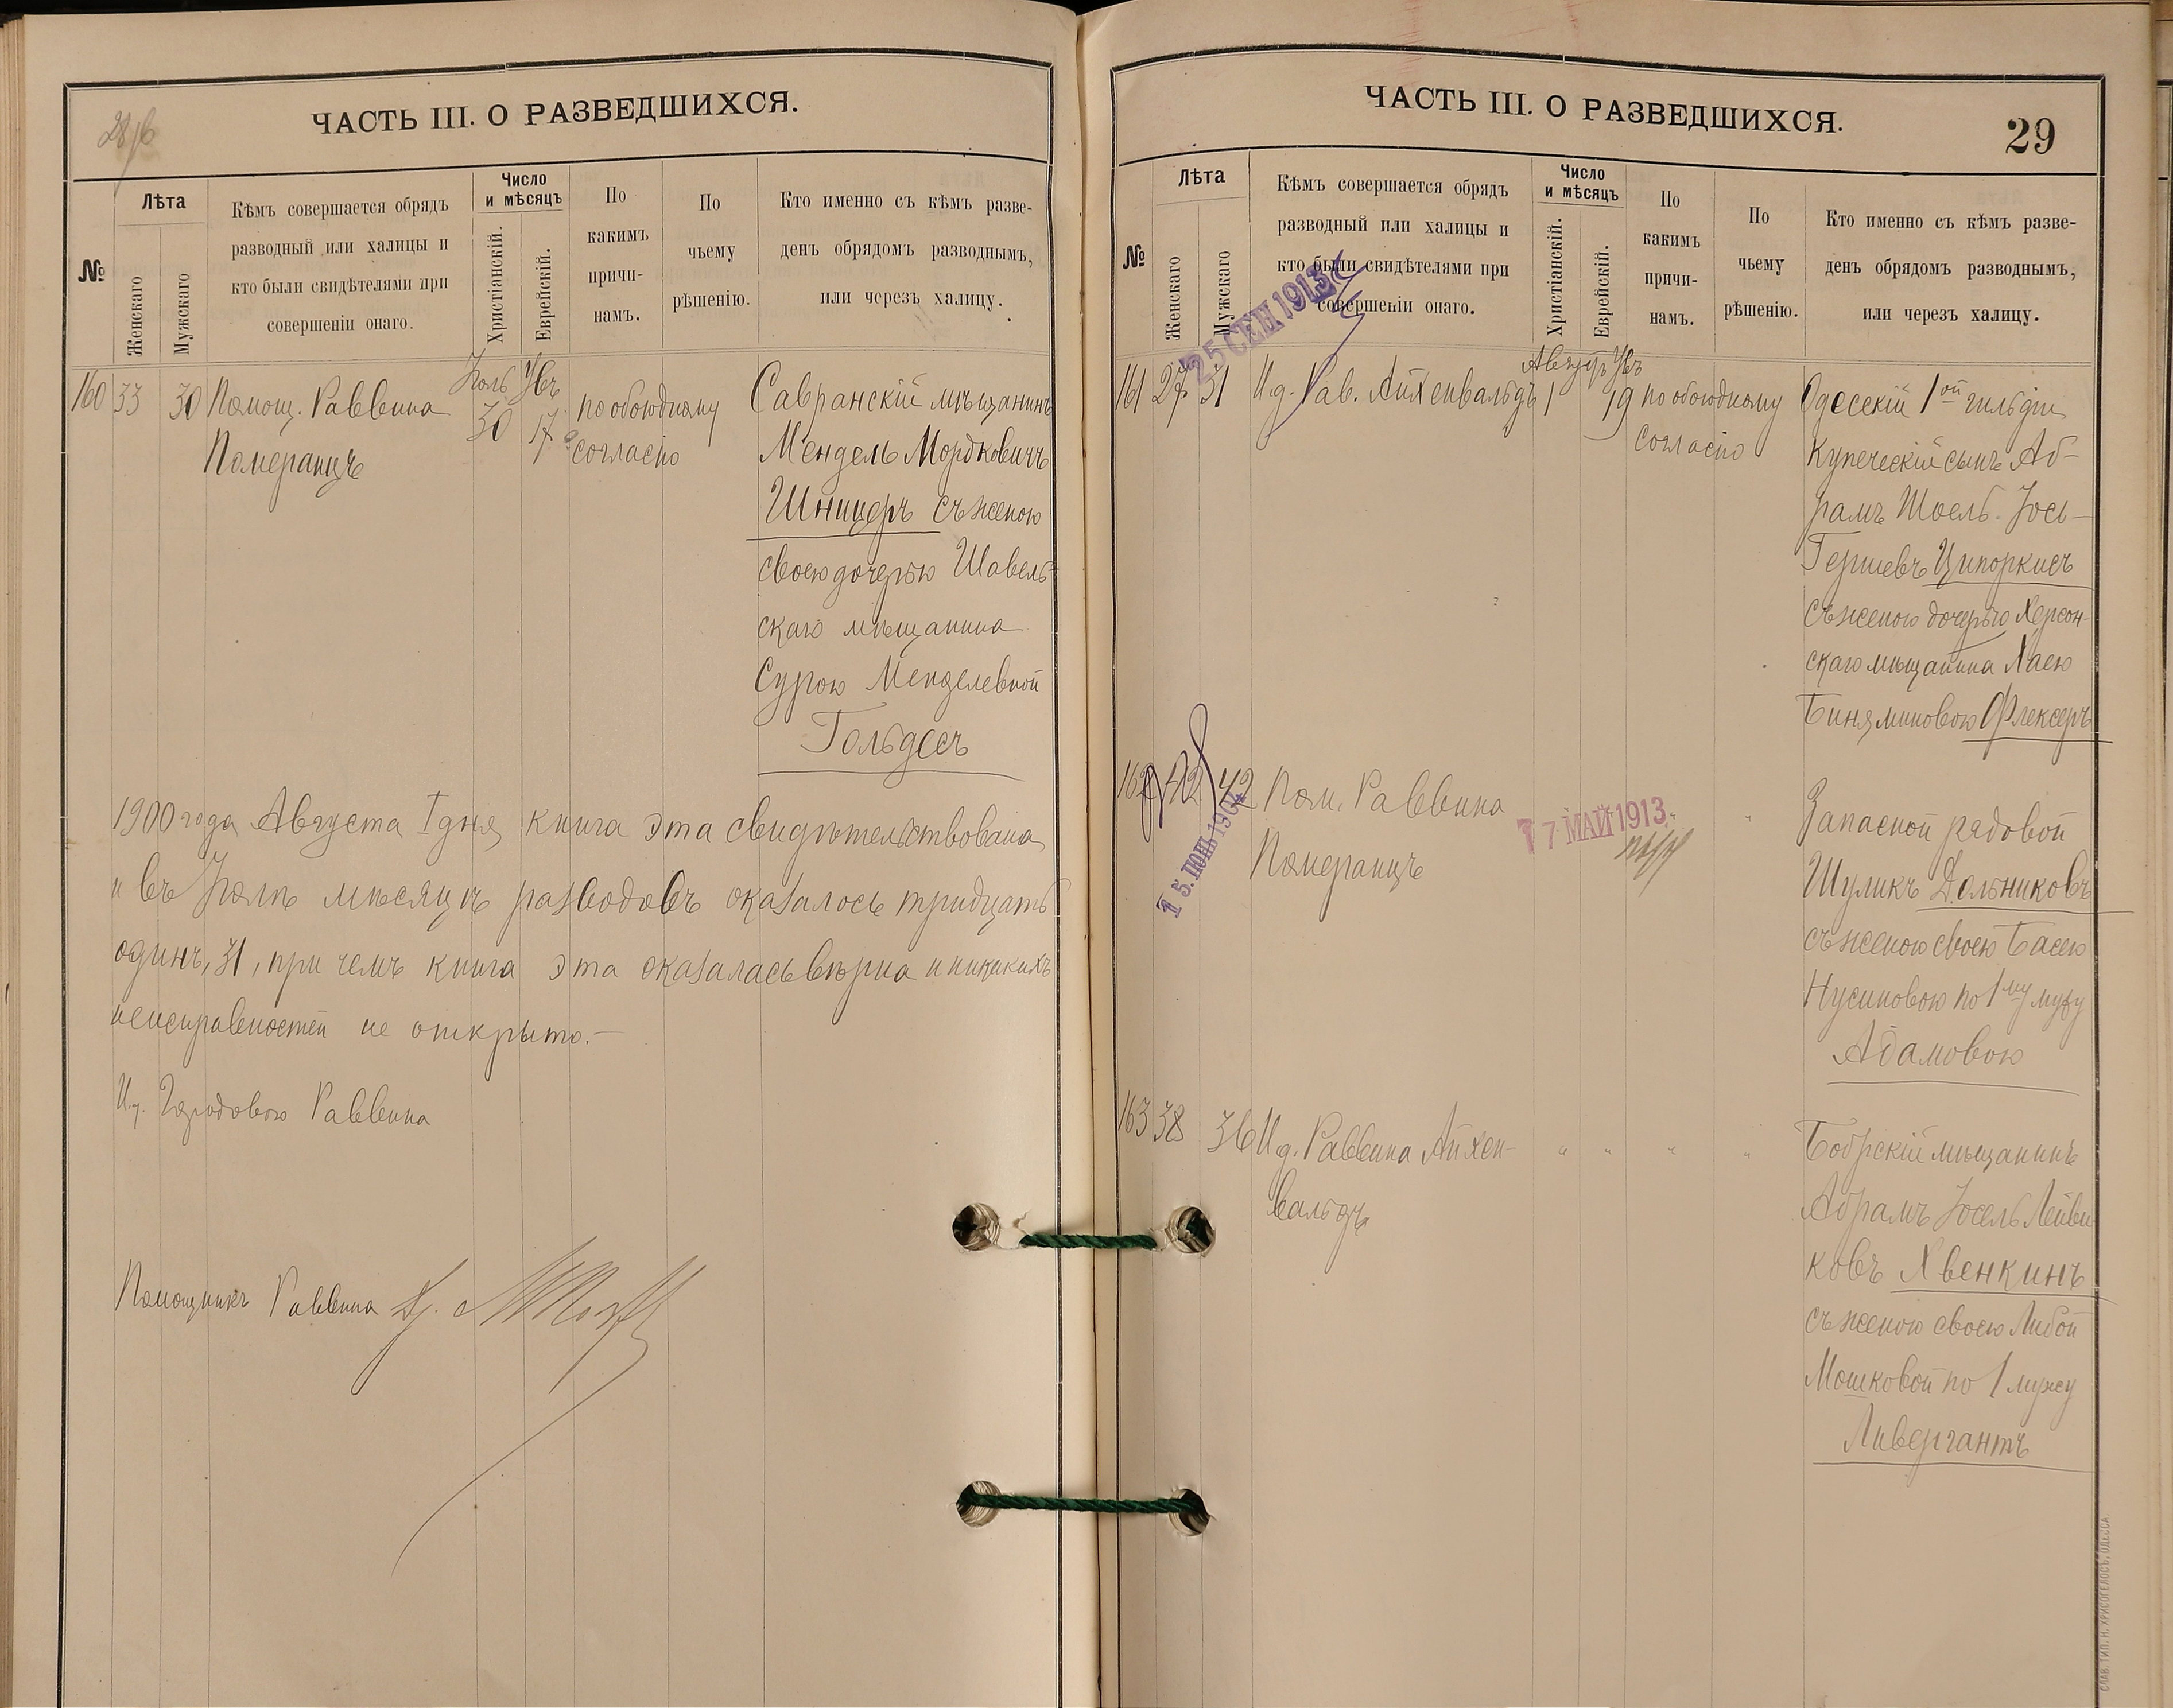 28об
ЧАСТЬ III. О РАЗВЕДШИХСЯ.
№
Лѣта
Женскаго
Мужскаго
Кѣмъ совершается обрядъ
разводный или халицы и
кто были свидѣтелями при
совершеніи онаго.
Число
и мѣсяцъ
Христіанскій.
Еврейскій.
По
какимъ
причи-
намъ.
По
чьему
рѣшенію.
Кто именно съ кѣмъ разве-
денъ обрядомъ разводнымъ,
или черезъ халицу.
160 33 30
Помощ. Раввина
Померанцъ
Іюль
30
Увъ
17
по обоюдному
согласію
Савранскій мѣщанинъ
Мендель Мордковичъ
Шницеръ съ женою
своею дочерью Шавель-
скаго мѣщанина
Сурою Менделевной
Гольдесъ
1900 года Августа 1 дня книга эта свидѣтельствована
и въ Іюлѣ мѣсяцѣ разводовъ оказалось тридцать
одинъ, 31, при чемъ книга эта оказалась вѣрна и никакихъ
неисправностей не открыто.—
И. Городового Раввина
Помощникъ Раввина
ЧАСТЬ III. О РАЗВЕДШИХСЯ.
29
№
Лѣта
Женскаго
Мужскаго
Кѣмъ совершается обрядъ
разводный или халицы и
кто были свидѣтелями при
совершеніи онаго.
Число
и мѣсяцъ
Христіанскій.
Еврейскій.
По
какимъ
причи-
намъ.
По
чьему
рѣшенію.
Кто именно съ кѣмъ разве-
денъ обрядомъ разводнымъ,
или черезъ халицу.
25 СЕН 1913
161 27 31
И.д. Рав. Айхенвальдъ
Августъ
1
Увъ
19
по обоюдному
согласію
Одесскій 1ой гильдіи
купеческій сынъ Аб-
рамъ Шоель-Іось-
Гершевъ Ципоркисъ
съ женою дочерью Херсон-
скаго мѣщанина Хаею
Биняминовою Флексеръ
162 42 42
15. ІЮНЬ 1904
Пом. Раввина
Померанцъ
17 МАЙ 1913
Запасной рядовой
Шуликъ Дольниковъ
съ женою своею Басею
Нусиновою по 1му мужу
Адамовою
163 38 36
И.д. Раввина Айхен-
вальдъ
" " " "
Бобрскій мѣщанинъ
Абрамъ Іосель Лейви-
ковъ Хвенкинъ
съ женою своею Либой
Мошковой по 1 мужу
Ливергантъ
СЛАВ. ТИП. Н. ХРИСОГЕЛОСЪ, ОДЕССА.